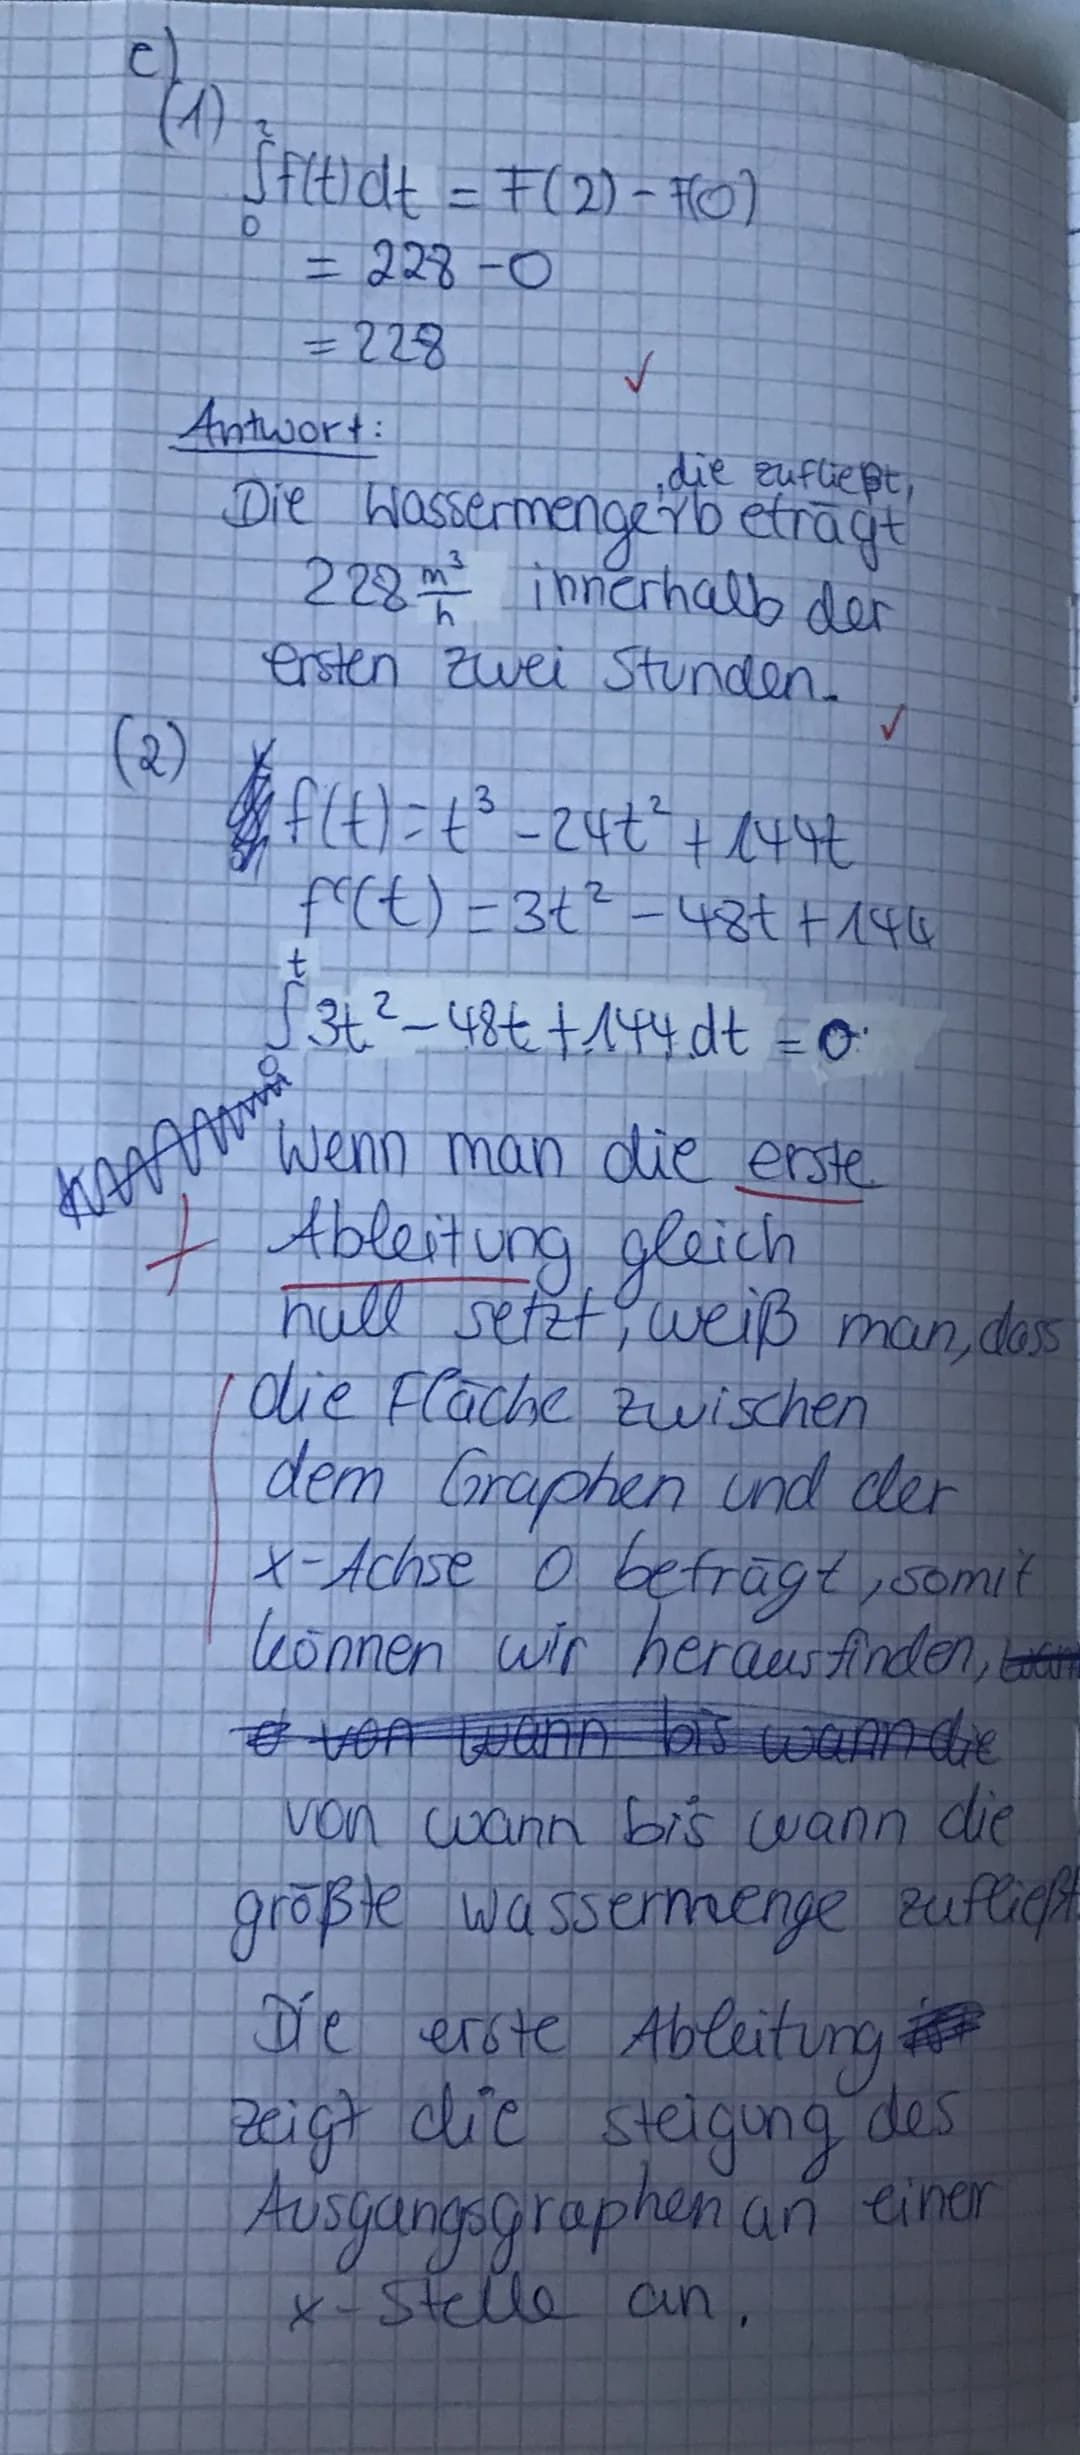 c)
(1)
∫₀² f(t) dt = F(2) - F(0)
= 228 - 0
= 228 ✓
Antwort:
, die zufließt,
Die Wassermenge beträgt
228 m³/h innerhalb der
ersten zwei Stunden. ✓
(2)
f(t) = t³ - 24t² + 144t
f'(t) = 3t² - 48t + 144
∫₀ᵗ 3t² - 48t + 144 dt = 0
Wenn man die erste
Ableitung gleich
null setzt, weiß man, dass
die Fläche zwischen
dem Graphen und der
x-Achse 0 beträgt, somit
können wir herausfinden,
von wann bis wann die
von wann bis wann die
größte wassermenge zufließt
Die erste Ableitung
zeigt die steigung des
Ausgangsgraphen an einer
x-Stelle an.